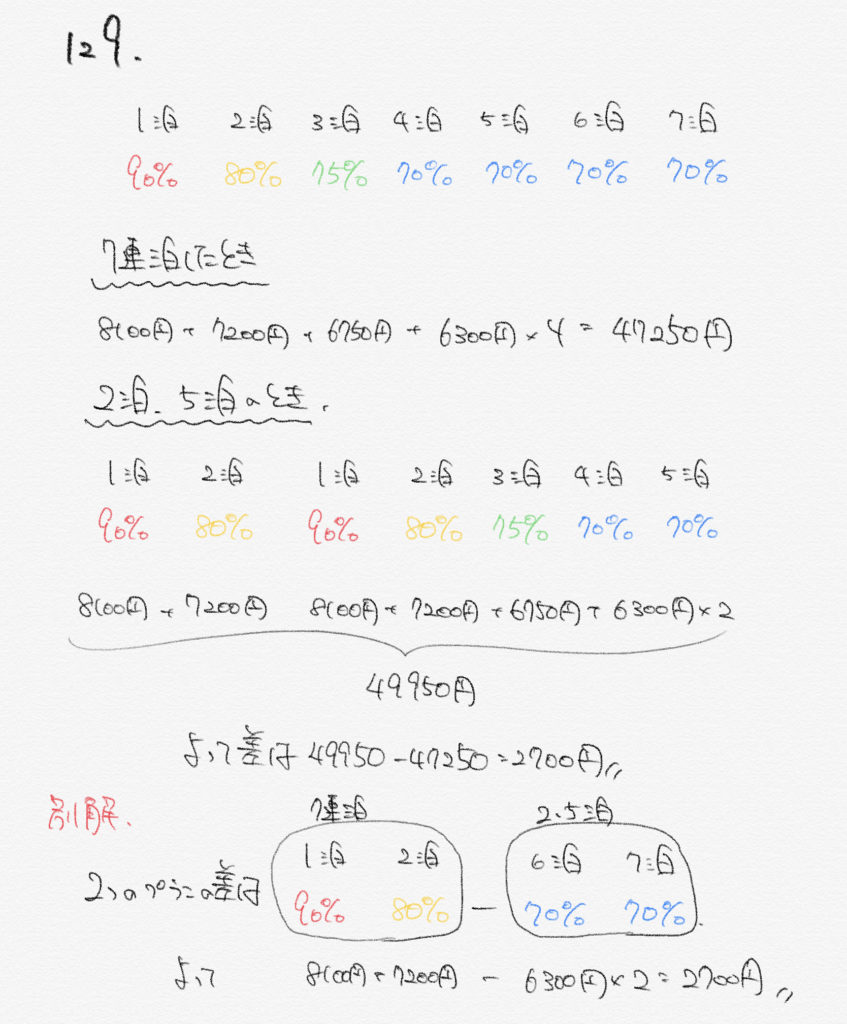 129.
1泊 2泊 3泊 4泊 5泊 6泊 7泊
90% 80% 75% 70% 70% 70% 70%
7連泊したとき
8100円 + 7200円 + 6750円 + 6300円 × 4 = 47250円
2泊、5泊のとき.
1泊 2泊 1泊 2泊 3泊 4泊 5泊
90% 80% 90% 80% 75% 70% 70%
8100円 + 7200円 8100円 + 7200円 + 6750円 + 6300円 × 2
49950円
よって差は 49950 - 47250 = 2700円〃
別解.
7連泊 2.5泊
1泊 2泊 6泊 7泊
2つのプランの差は 90% 80% - 70% 70%.
よって 8100円 + 7200円 - 6300円 × 2 = 2700円〃